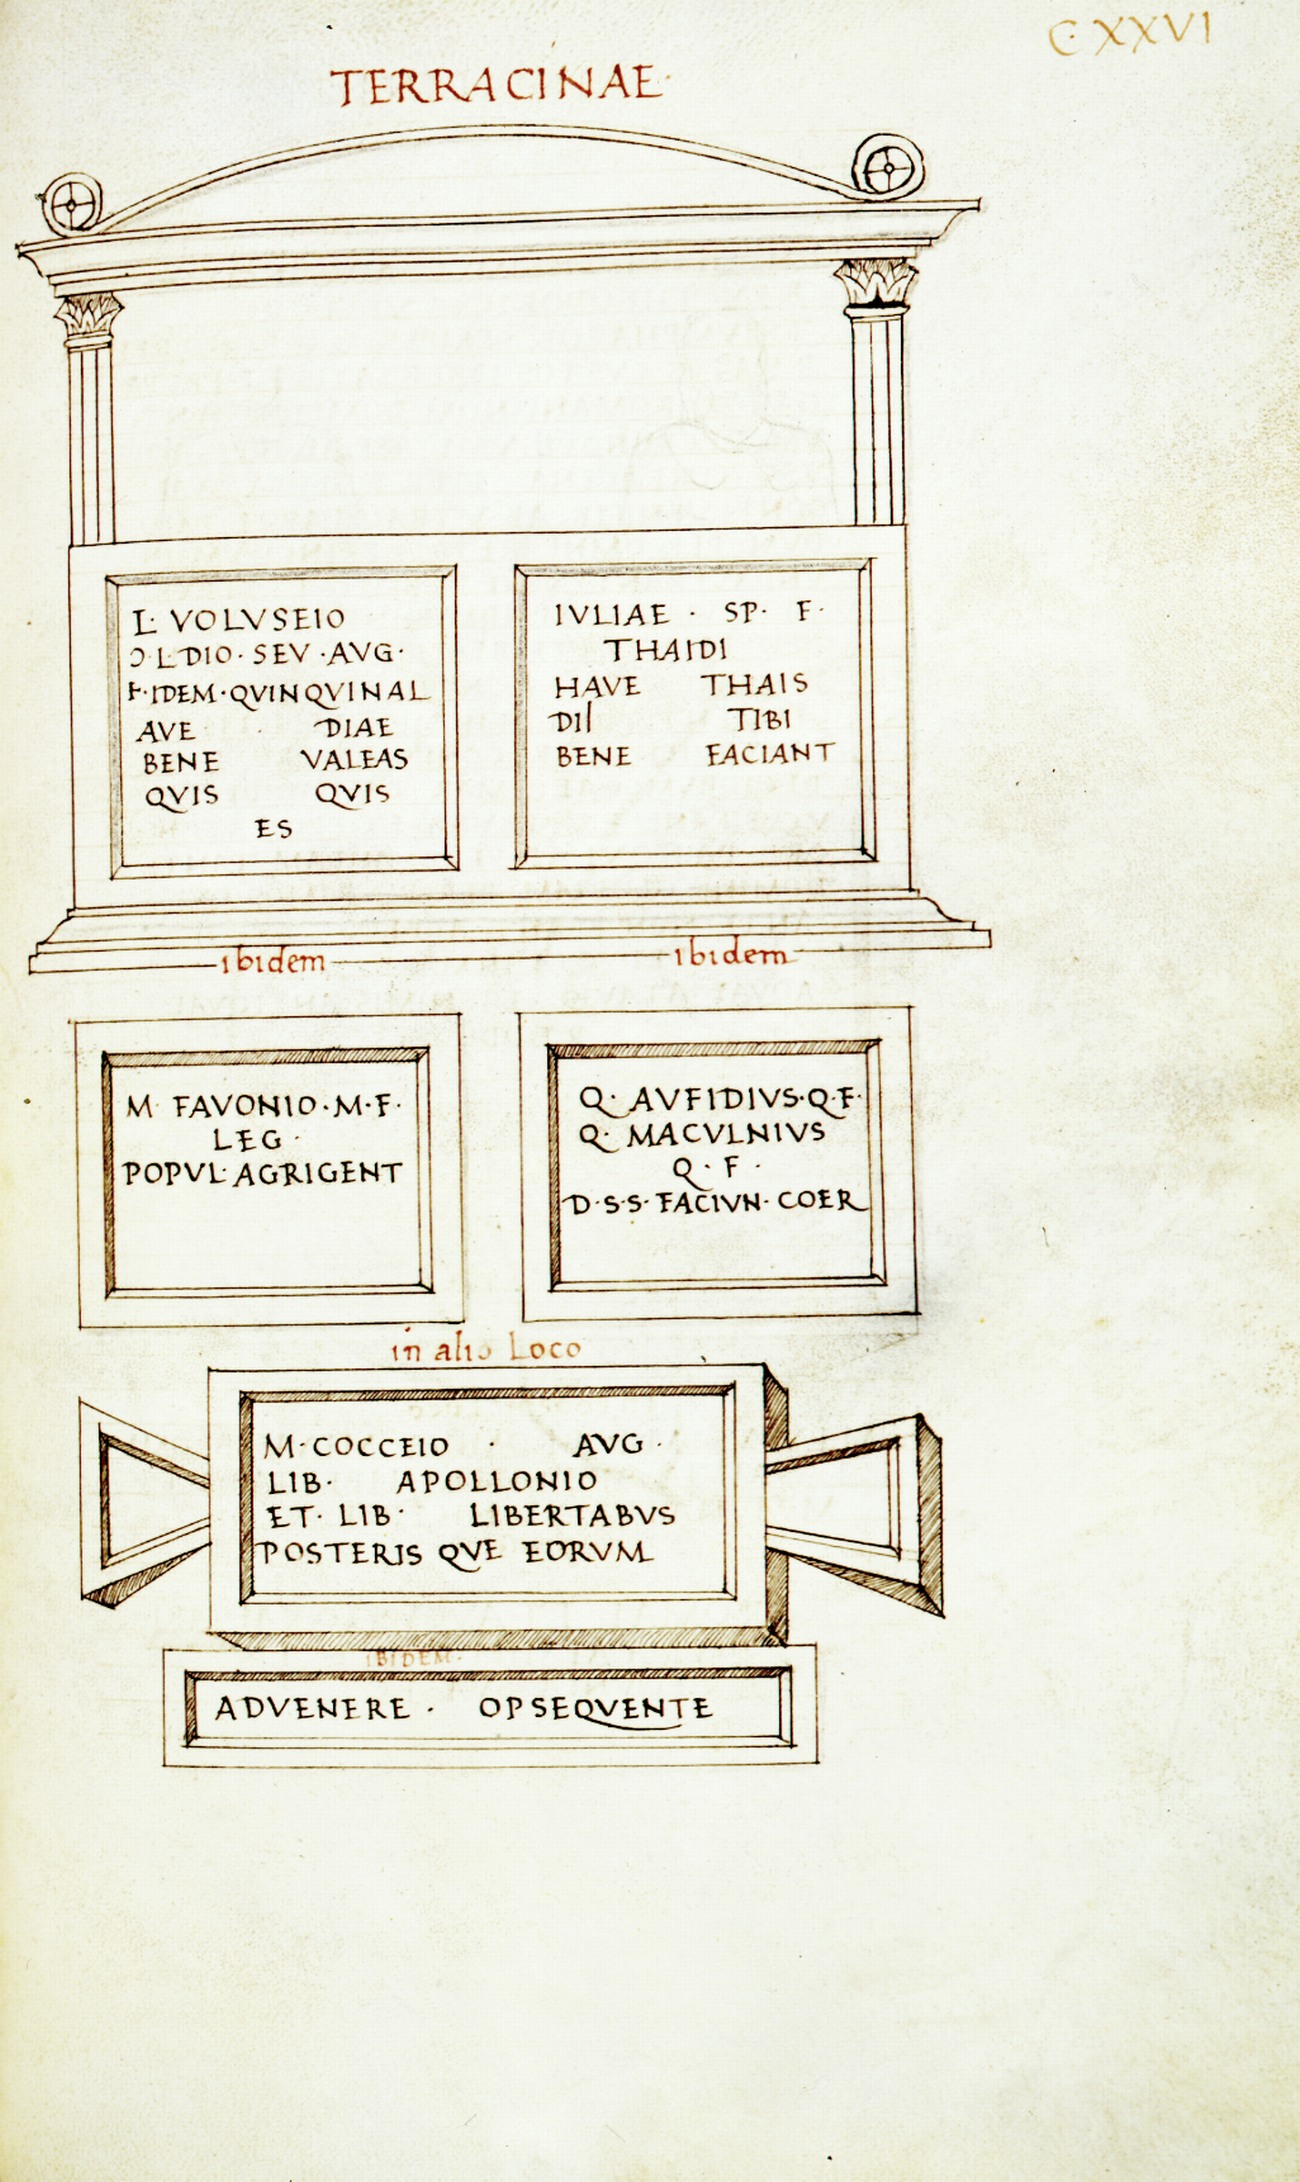 C·XXVI
TERRACINAE·
L· VOLVSEIO
Ɔ·L·DIO·SEV·AVG·
F·IDEM·QVINQVINAL
AVE · DIAE
BENE VALEAS
QVIS QVIS
ES
IVLIAE · SP· F·
THAIDI
HAVE THAIS
DII TIBI
BENE FACIANT
ibidem
ibidem
M· FAVONIO·M·F·
LEG·
POPVL·AGRIGENT
Q· AVFIDIVS·Q·F·
Q· MACVLNIVS
Q· F·
D·S·S·FACIVN·COER
in alio Loco
M·COCCEIO · AVG·
LIB· APOLLONIO
ET· LIB· LIBERTABVS
POSTERIS QVE EORVM
IBIDEM·
ADVENERE · OPSEQVENTE